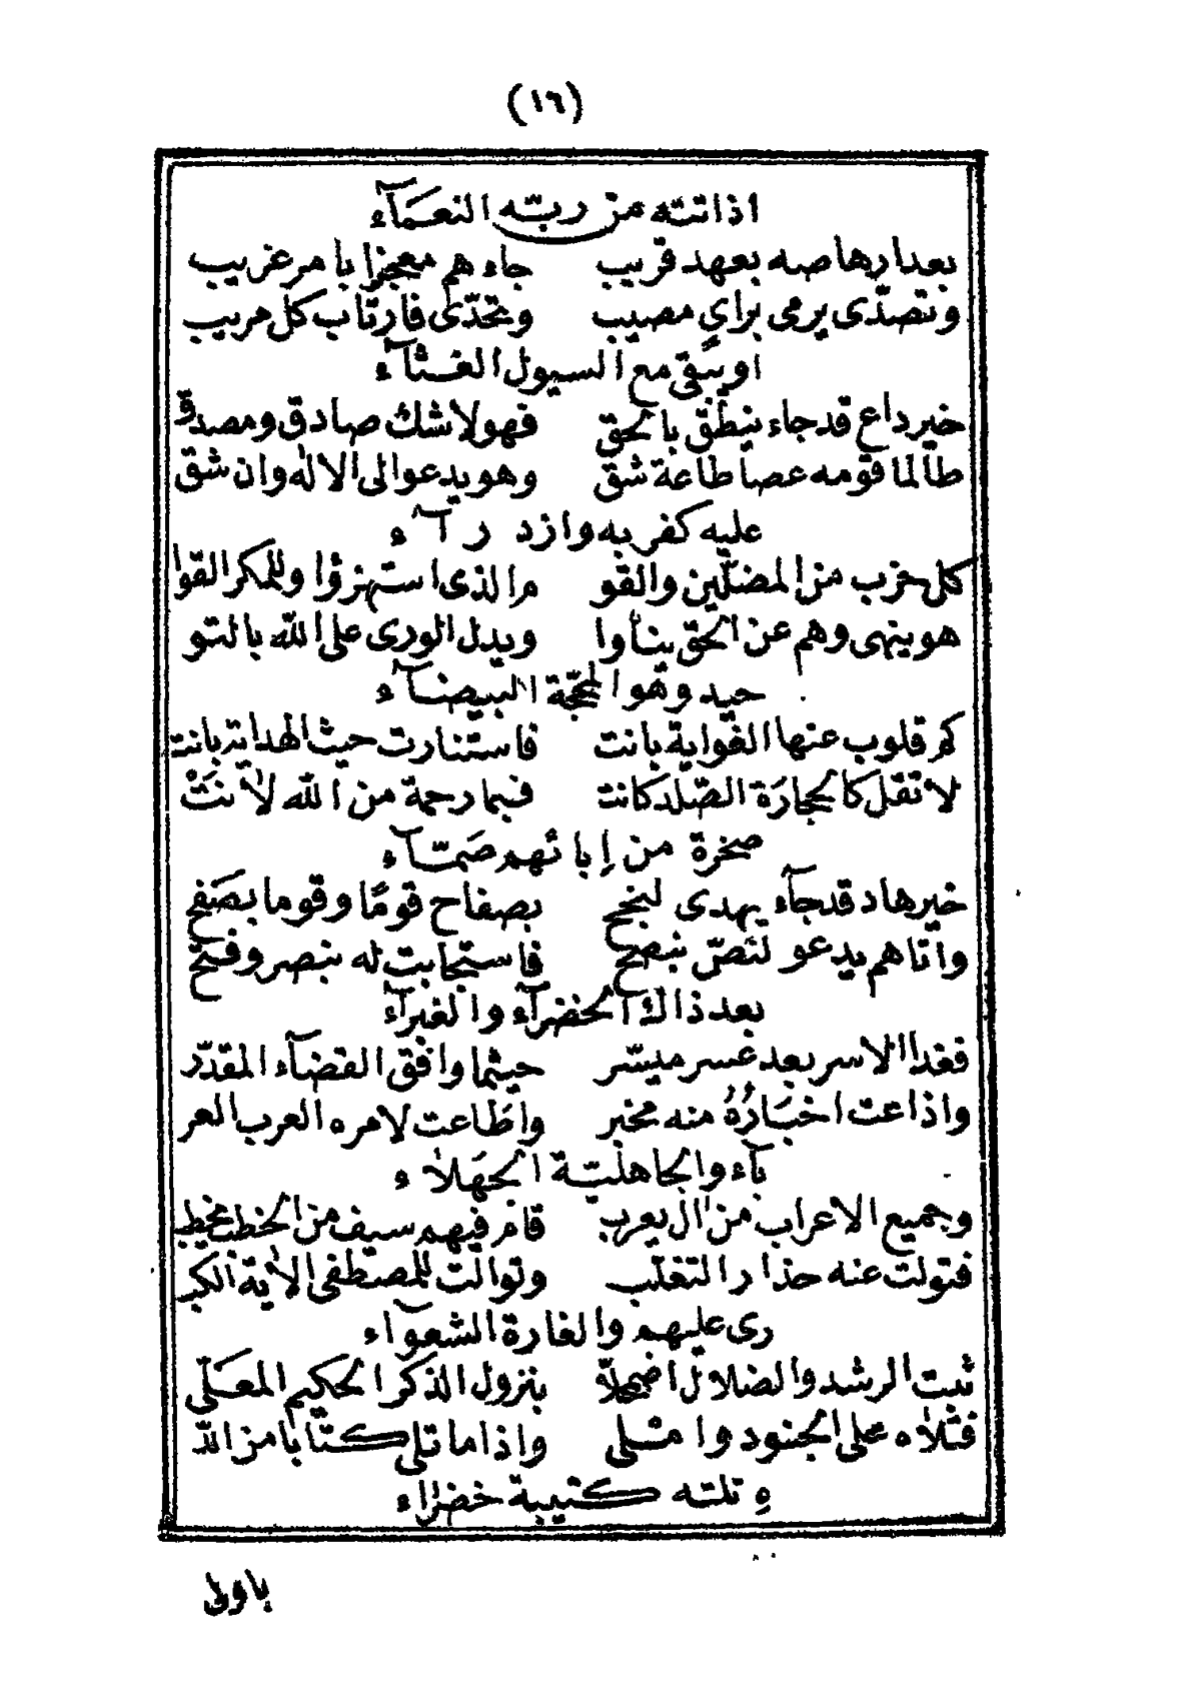 (١٦)
اذا تته من ربّه النعمآء
بعد ارهاصه بعهد قريب جاء هم معجزا با مر غريب
وتصدّى يرمى براي مصيب وتحدّى فارتاب كل مريب
اويبقى مع السيول الغثآء
خير داع قد جاء ينطق بالحق فهو لا شك صادق ومصدق
طالما قومه عصا طاعة شق وهو يدعو الى الاله وان شق
عليه كفر به وازد رآء
كل حزب من المضلّين والقو م الذى استهزؤا وللمكر القوا
هو ينهى وهم عن الحق ينأوا ويدل الورى على الله بالتو
حيد وهو المحجّة البيضآء
كم قلوب عنها الغواية بانت فاستنارت حيث الهداية بانت
لا تقل كالحجارة الصّلد كانت فبما رحمة من الله لانَتْ
صخرة من اِبائهم صَمّآء
خير هاد قد جآء يهدى لنجح بصفاح قومًا وقوما بصَفح
واتاهم يدعو لنصّ بنصح فاستجابت له بنصر وفتح
بعد ذاك الخضرآء والغبرآء
فغدا الاسر بعد عسر ميسّر حيثما وافق القضآء المقدّر
واذاعت اخبَارُهُ منه مخبر واطَاعت لامره العرب العر
بآء والجاهليّة الجهَلاء
وجميع الاعراب من ال يعرب قام فيهم سيف من الخط يخطب
فتولت عنه حذار التغلّب وتوالت للمصطفى الاية الكبر
رى عليهم والغارة الشعوآء
ثبت الرشد والضلال اضمحلّا بنزول الذكر الحكيم المعلّى
فتلاه على الجنود واملى واذا ما تلى كتابا من اللّ
هِ تلته كتيبة خضراء